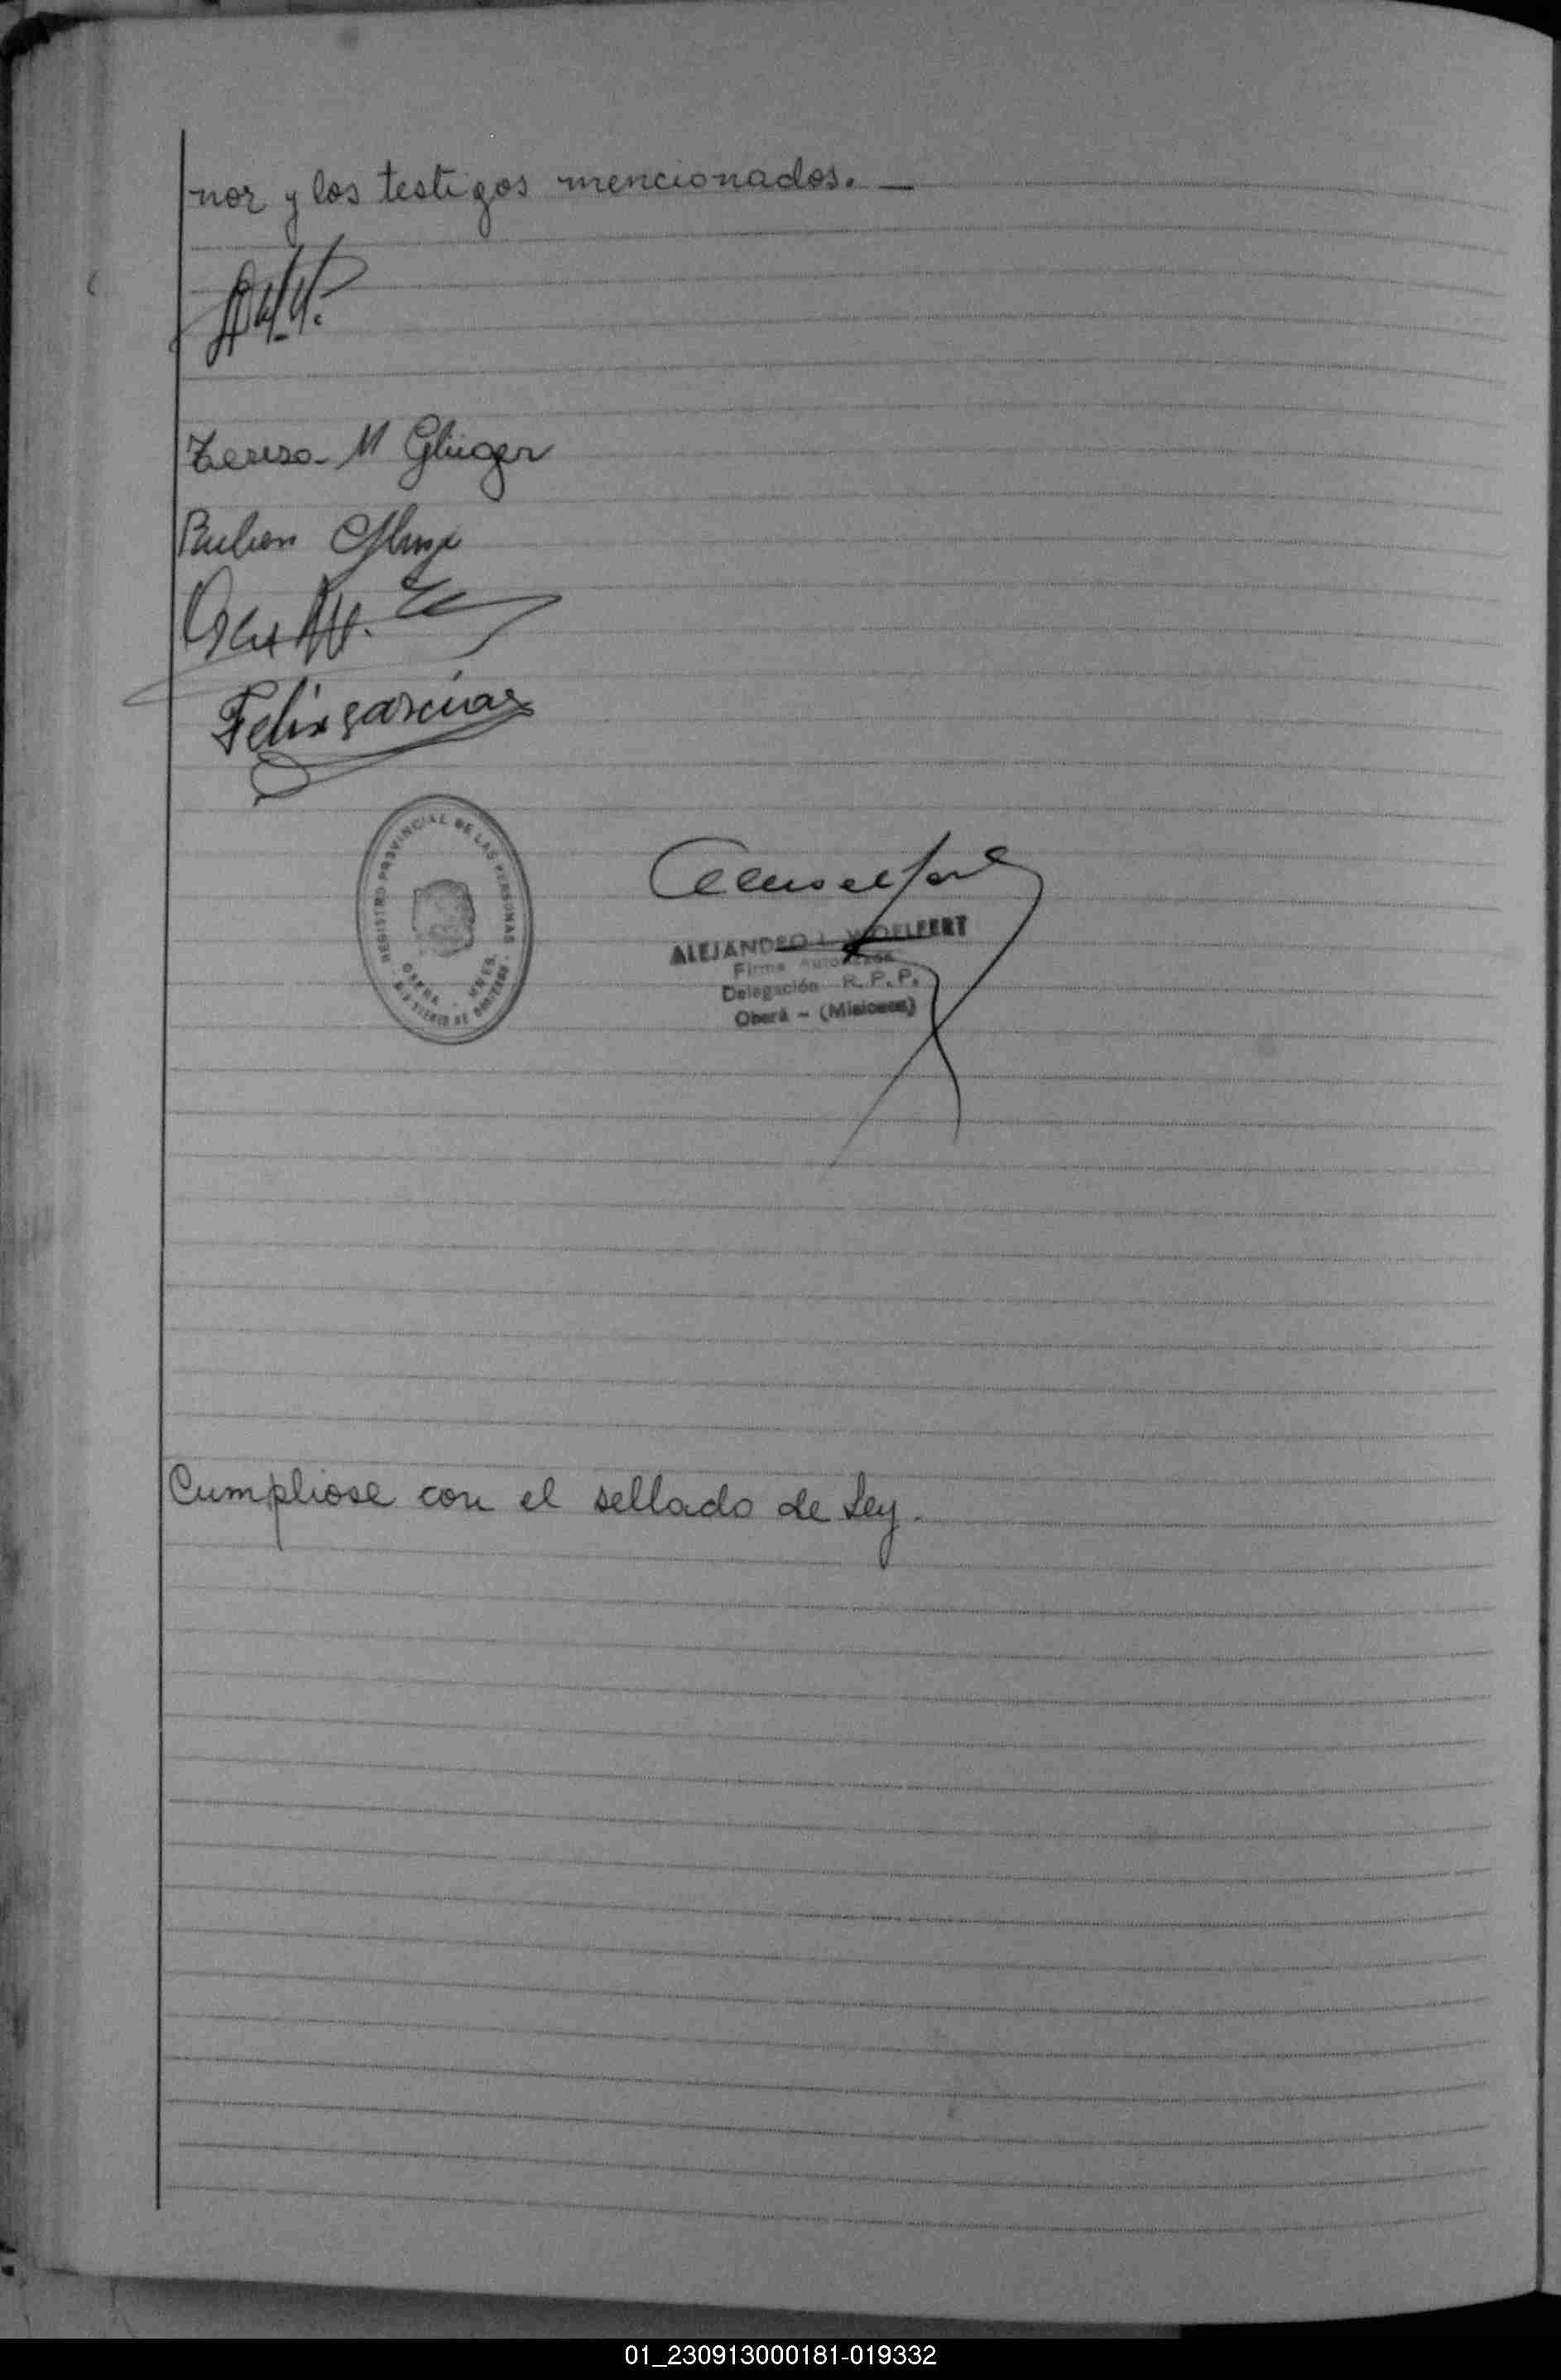 nor y los testigos mencionados. —
Teresa M Glinger
Ruben
Felix Garcia
REGISTRO PROVINCIAL DE LAS PERSONAS
OBERA - MNES.
MINISTERIO DE GOBIERNO
ALEJANDRO L. WOELFERT
Firma Autorizada
Delegación R. P. P.
Oberá - (Misiones)
Cumpliose con el sellado de Ley.
01_230913000181-019332